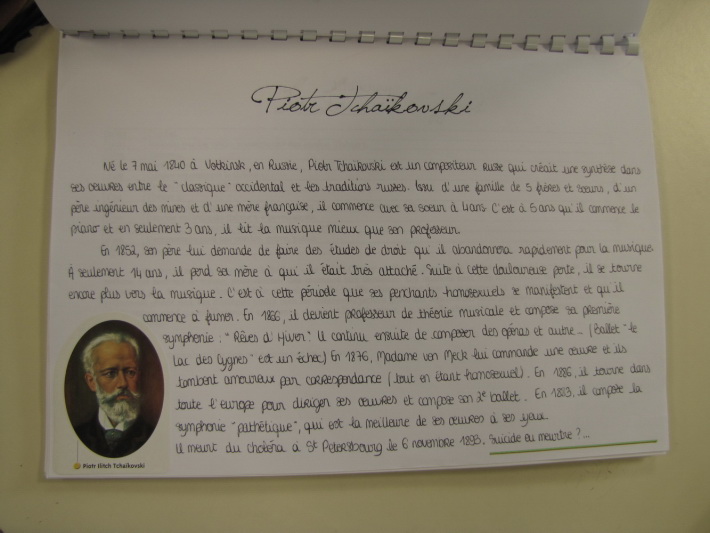 Piotr Tchaïkovski
Né le 7 mai 1840 à Votkinsk, en Russie, Piotr Tchaïkovski est un compositeur russe qui créait une synthèse dans
ses oeuvres entre le "classique" occidental et les traditions russes. Issu d'une famille de 5 frères et soeurs, d'un
père ingénieur des mines et d'une mère française, il commence avec sa soeur à 4 ans. C'est à 5 ans qu'il commence le
piano et en seulement 3 ans, il lit la musique mieux que son professeur.
En 1852, son père lui demande de faire des études de droit qu'il abandonnera rapidement pour la musique.
À seulement 14 ans, il perd sa mère à qui il était très attaché. Suite à cette douloureuse perte, il se tourne
encore plus vers la musique. C'est à cette période que ses penchants homosexuels se manifestent et qu'il
commence à fumer. En 1866, il devient professeur de théorie musicale et compose sa première
symphonie : "Rêves d'Hiver". Il continu ensuite de composer des opéras et autre... (Ballet "le
Lac des Cygnes" est un échec) En 1876, Madame von Meck lui commande une oeuvre et ils
tombent amoureux par correspondance (tout en étant homosexuel). En 1886, il tourne dans
toute l'europe pour diriger ses oeuvres et compose son 2e ballet. En 1893, il compose la
symphonie "pathétique", qui est la meilleure de ses oeuvres à ses yeux.
Il meurt du choléra à St Petersbourg le 6 novembre 1893. Suicide ou meurtre ?...
Piotr Ilitch Tchaïkovski